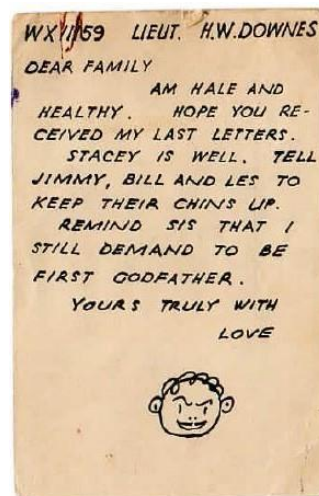 WX11159 LIEUT. H.W.DOWNES
DEAR FAMILY
AM HALE AND
HEALTHY. HOPE YOU RE-
CEIVED MY LAST LETTERS.
STACEY IS WELL. TELL
JIMMY, BILL AND LES TO
KEEP THEIR CHINS UP.
REMIND SIS THAT I
STILL DEMAND TO BE
FIRST GODFATHER.
YOURS TRULY WITH
LOVE